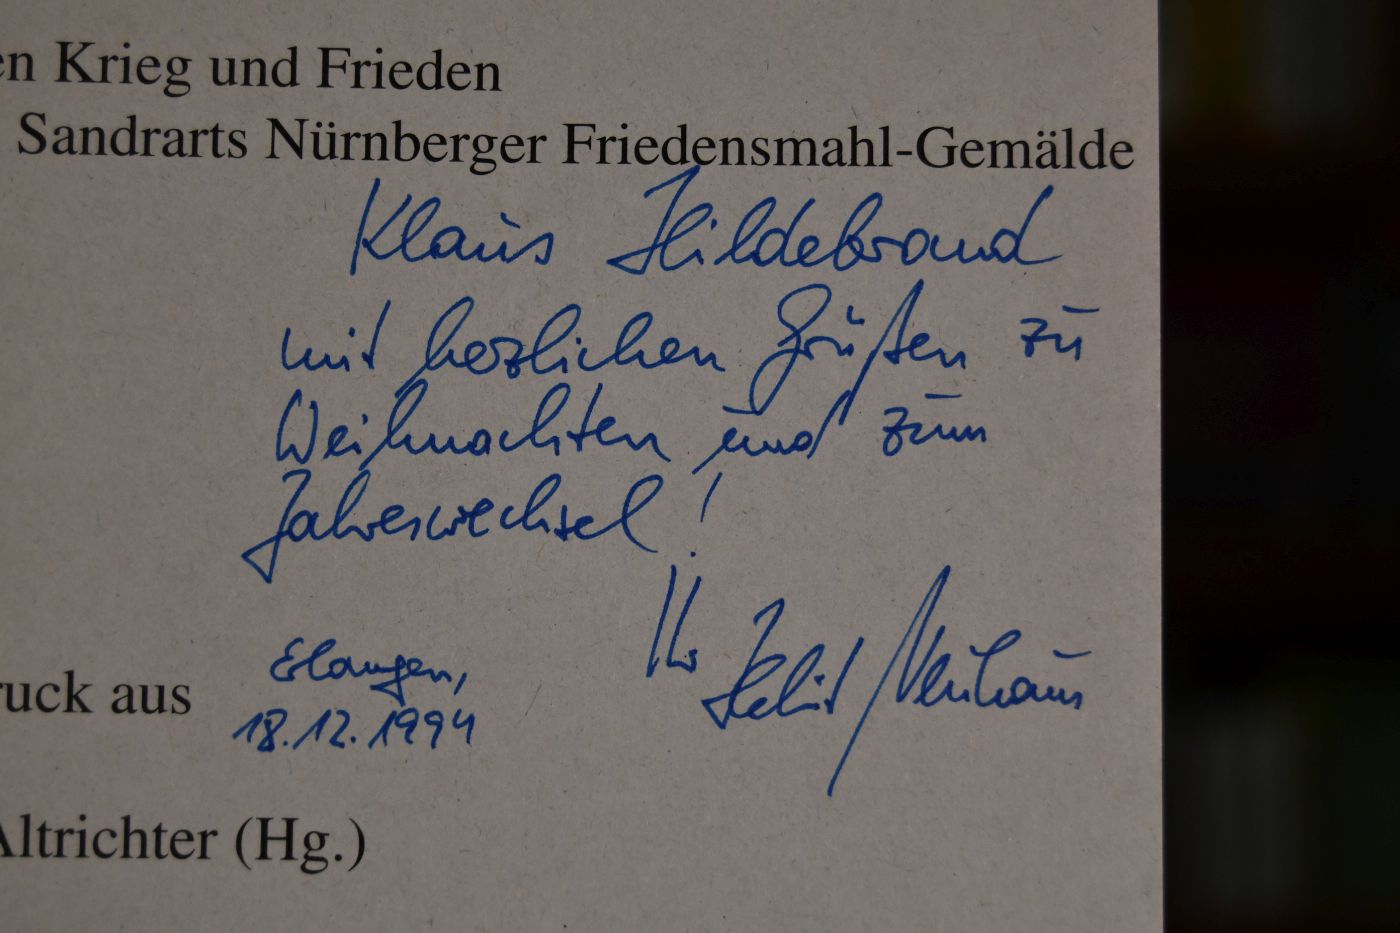 en Krieg und Frieden
Sandrarts Nürnberger Friedensmahl-Gemälde
Klaus Hildebrand
mit herzlichen Grüßen zu
Weihnachten und zum
Jahreswechsel!
Ihr Helmut Neuhaus
Erlangen,
18.12.1994
ruck aus
Altrichter (Hg.)